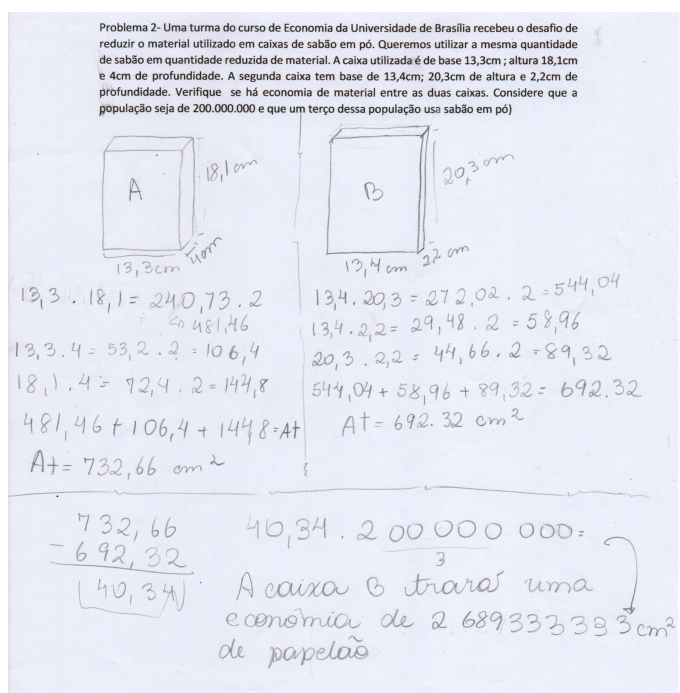 Problema 2- Uma turma do curso de Economia da Universidade de Brasília recebeu o desafio de
reduzir o material utilizado em caixas de sabão em pó. Queremos utilizar a mesma quantidade
de sabão em quantidade reduzida de material. A caixa utilizada é de base 13,3cm ; altura 18,1cm
e 4cm de profundidade. A segunda caixa tem base de 13,4cm; 20,3cm de altura e 2,2cm de
profundidade. Verifique se há economia de material entre as duas caixas. Considere que a
população seja de 200.000.000 e que um terço dessa população usa sabão em pó)
A
18,1 cm
4cm
13,3cm
13,3 . 18,1 = 240,73 . 2
↪ 481,46
13,3 . 4 = 53,2 . 2 = 106,4
18,1 . 4 = 72,4 . 2 = 144,8
481,46 + 106,4 + 144,8 = At
At = 732,66 cm²
B
20,3 cm
2,2 cm
13,4 cm
13,4 . 20,3 = 272,02 . 2 = 544,04
13,4 . 2,2 = 29,48 . 2 = 58,96
20,3 . 2,2 = 44,66 . 2 = 89,32
544,04 + 58,96 + 89,32 = 692.32
At = 692.32 cm²
732,66
- 692,32
40,34
40,34 . 200 000 000 =
3
A caixa B trará uma
economia de 2 689333333 cm²
de papelão